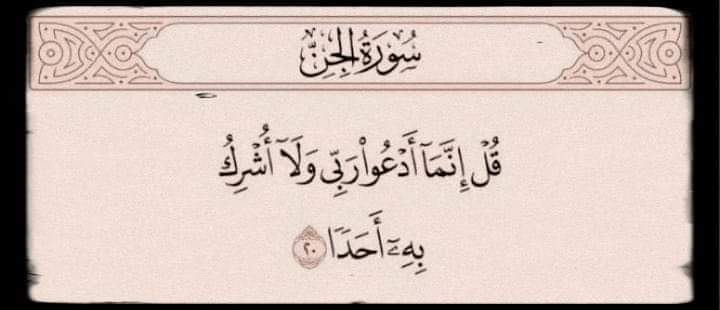 سُورَةُ الجِنِّ
قُلْ إِنَّمَآ أَدْعُوا۟ رَبِّى وَلَآ أُشْرِكُ
بِهِۦٓ أَحَدًا ٢٠